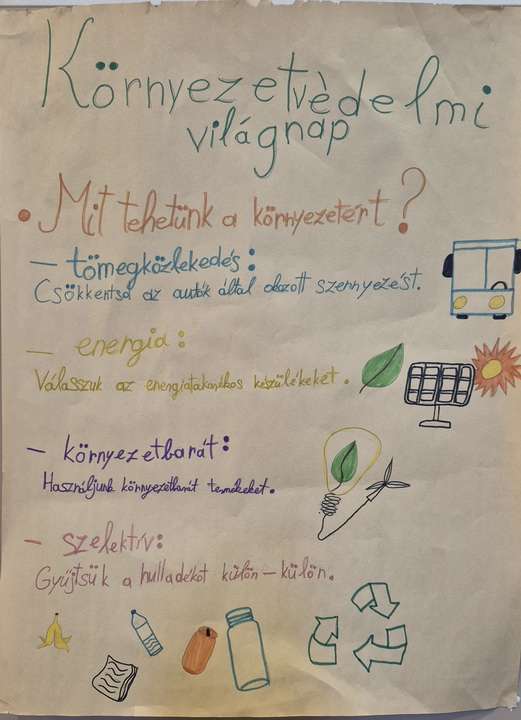 Környezetvèdelmi
világnap
• Mit tehetünk a környezetért?
- tömegközlekedés:
Csökkentsd az autók által okozott szennyezést.
- energia:
Válasszuk az energiatakarékos készülékeket.
- környezetbarát:
Használjunk környezetbarát termékeket.
- szelektív:
Gyűjtsük a hulladékot külön-külön.